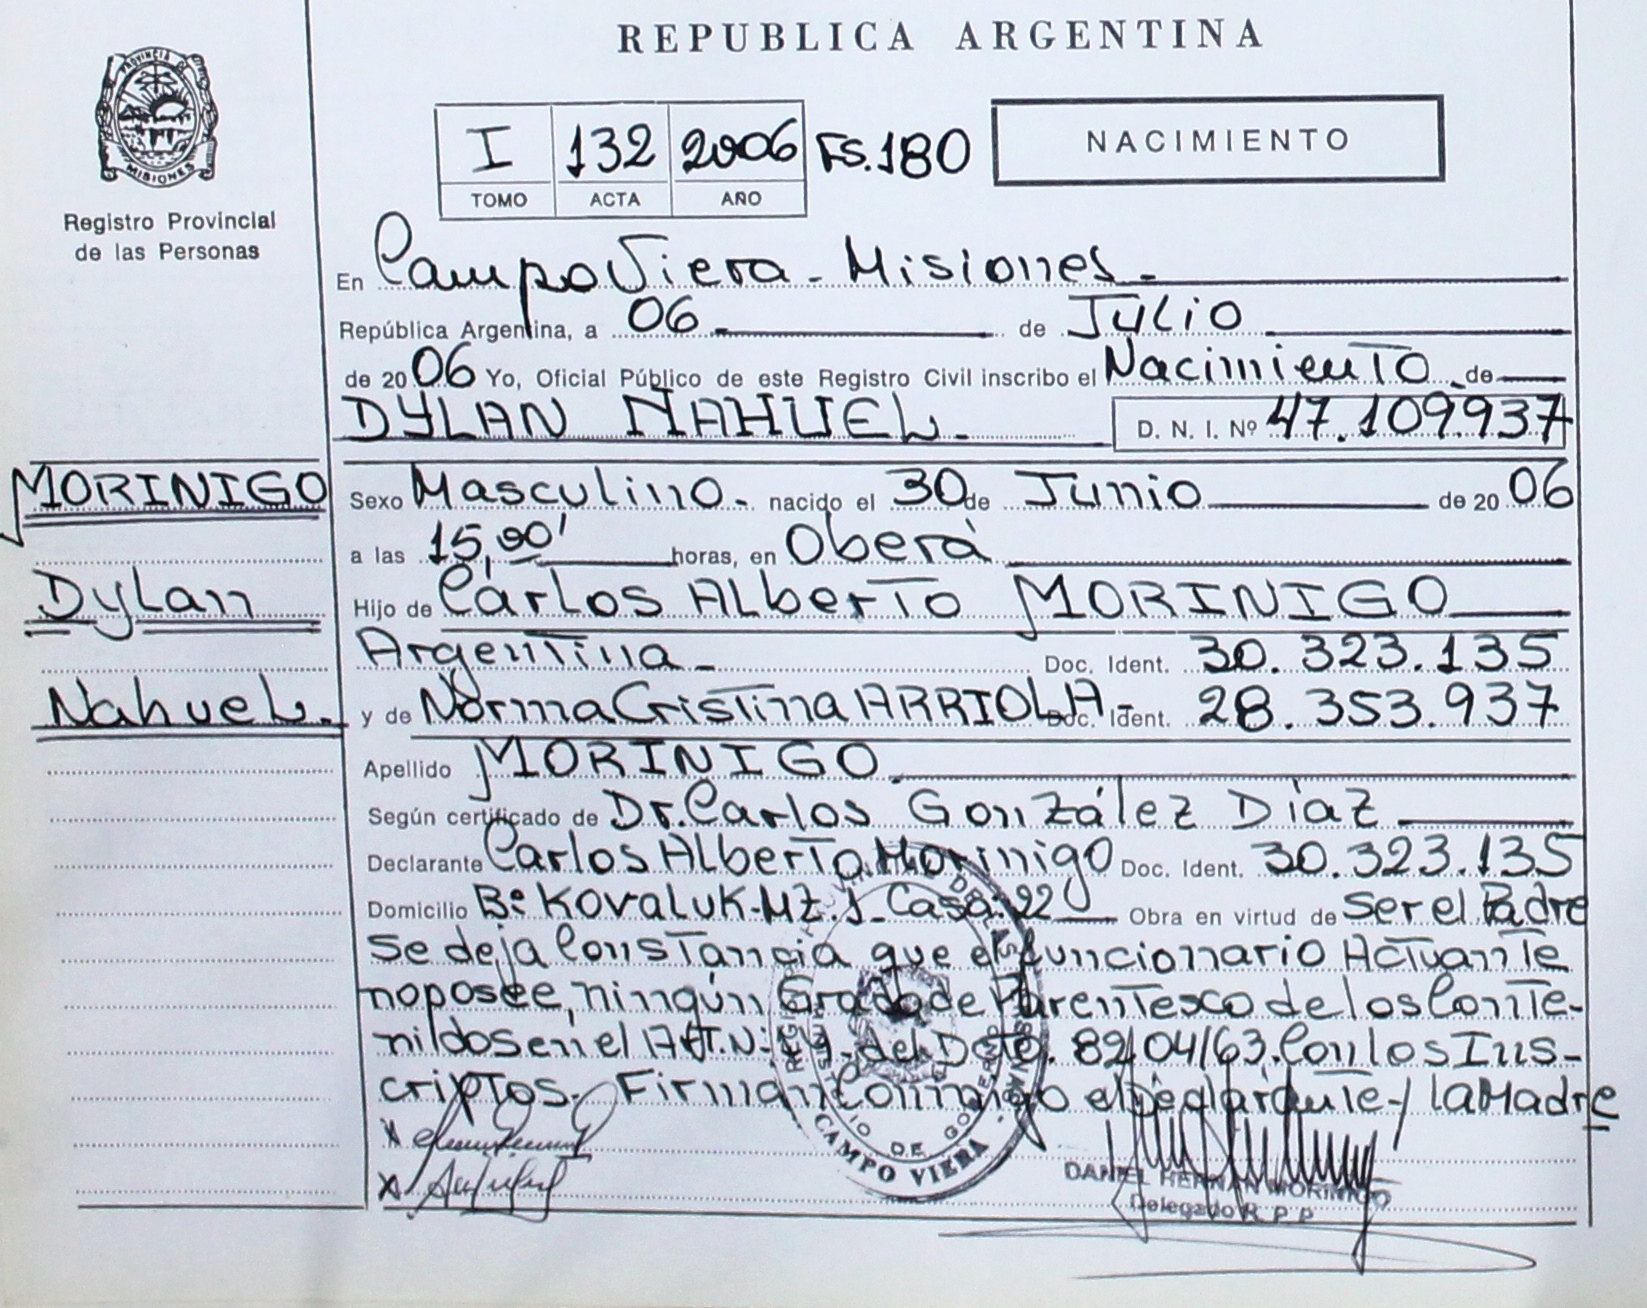 REPUBLICA ARGENTINA
PROVINCIA DE
MISIONES
Registro Provincial
de las Personas
I 132 2006 FS.180
TOMO ACTA AÑO
NACIMIENTO
En Campo Viera - Misiones.-
República Argentina, a 06 de Julio
de 2006 Yo, Oficial Público de este Registro Civil inscribo el Nacimiento de
DYLAN NAHUEL.- D. N. I. Nº 47.109937
MORINIGO
Dylan
Nahuel.
Sexo Masculino.- nacido el 30 de Junio de 2006
a las 15,00' horas, en Oberá
Hijo de Carlos Alberto MORINIGO
Argentina.- Doc. Ident. 30.323.135
y de Norma Cristina ARRIOLA- Doc. Ident. 28.353.937
Apellido MORINIGO
Según certificado de Dr. Carlos González Díaz
Declarante Carlos Alberto Morinigo Doc. Ident. 30.323.135
Domicilio Bº Kovaluk-Mz. J- Casa: 22 Obra en virtud de Ser el Padre
Se deja Constancia que el funcionario Actuante
no posee, ningún Grado de Parentesco de los Conte-
nidos en el del Dcto. 82/04/63. Con los Ins-
criptos. Firman Conmigo el Declarante y la Madre
CAMPO VIERA
DANIEL HERNAN MORINIGO
Delegado R. P. P.